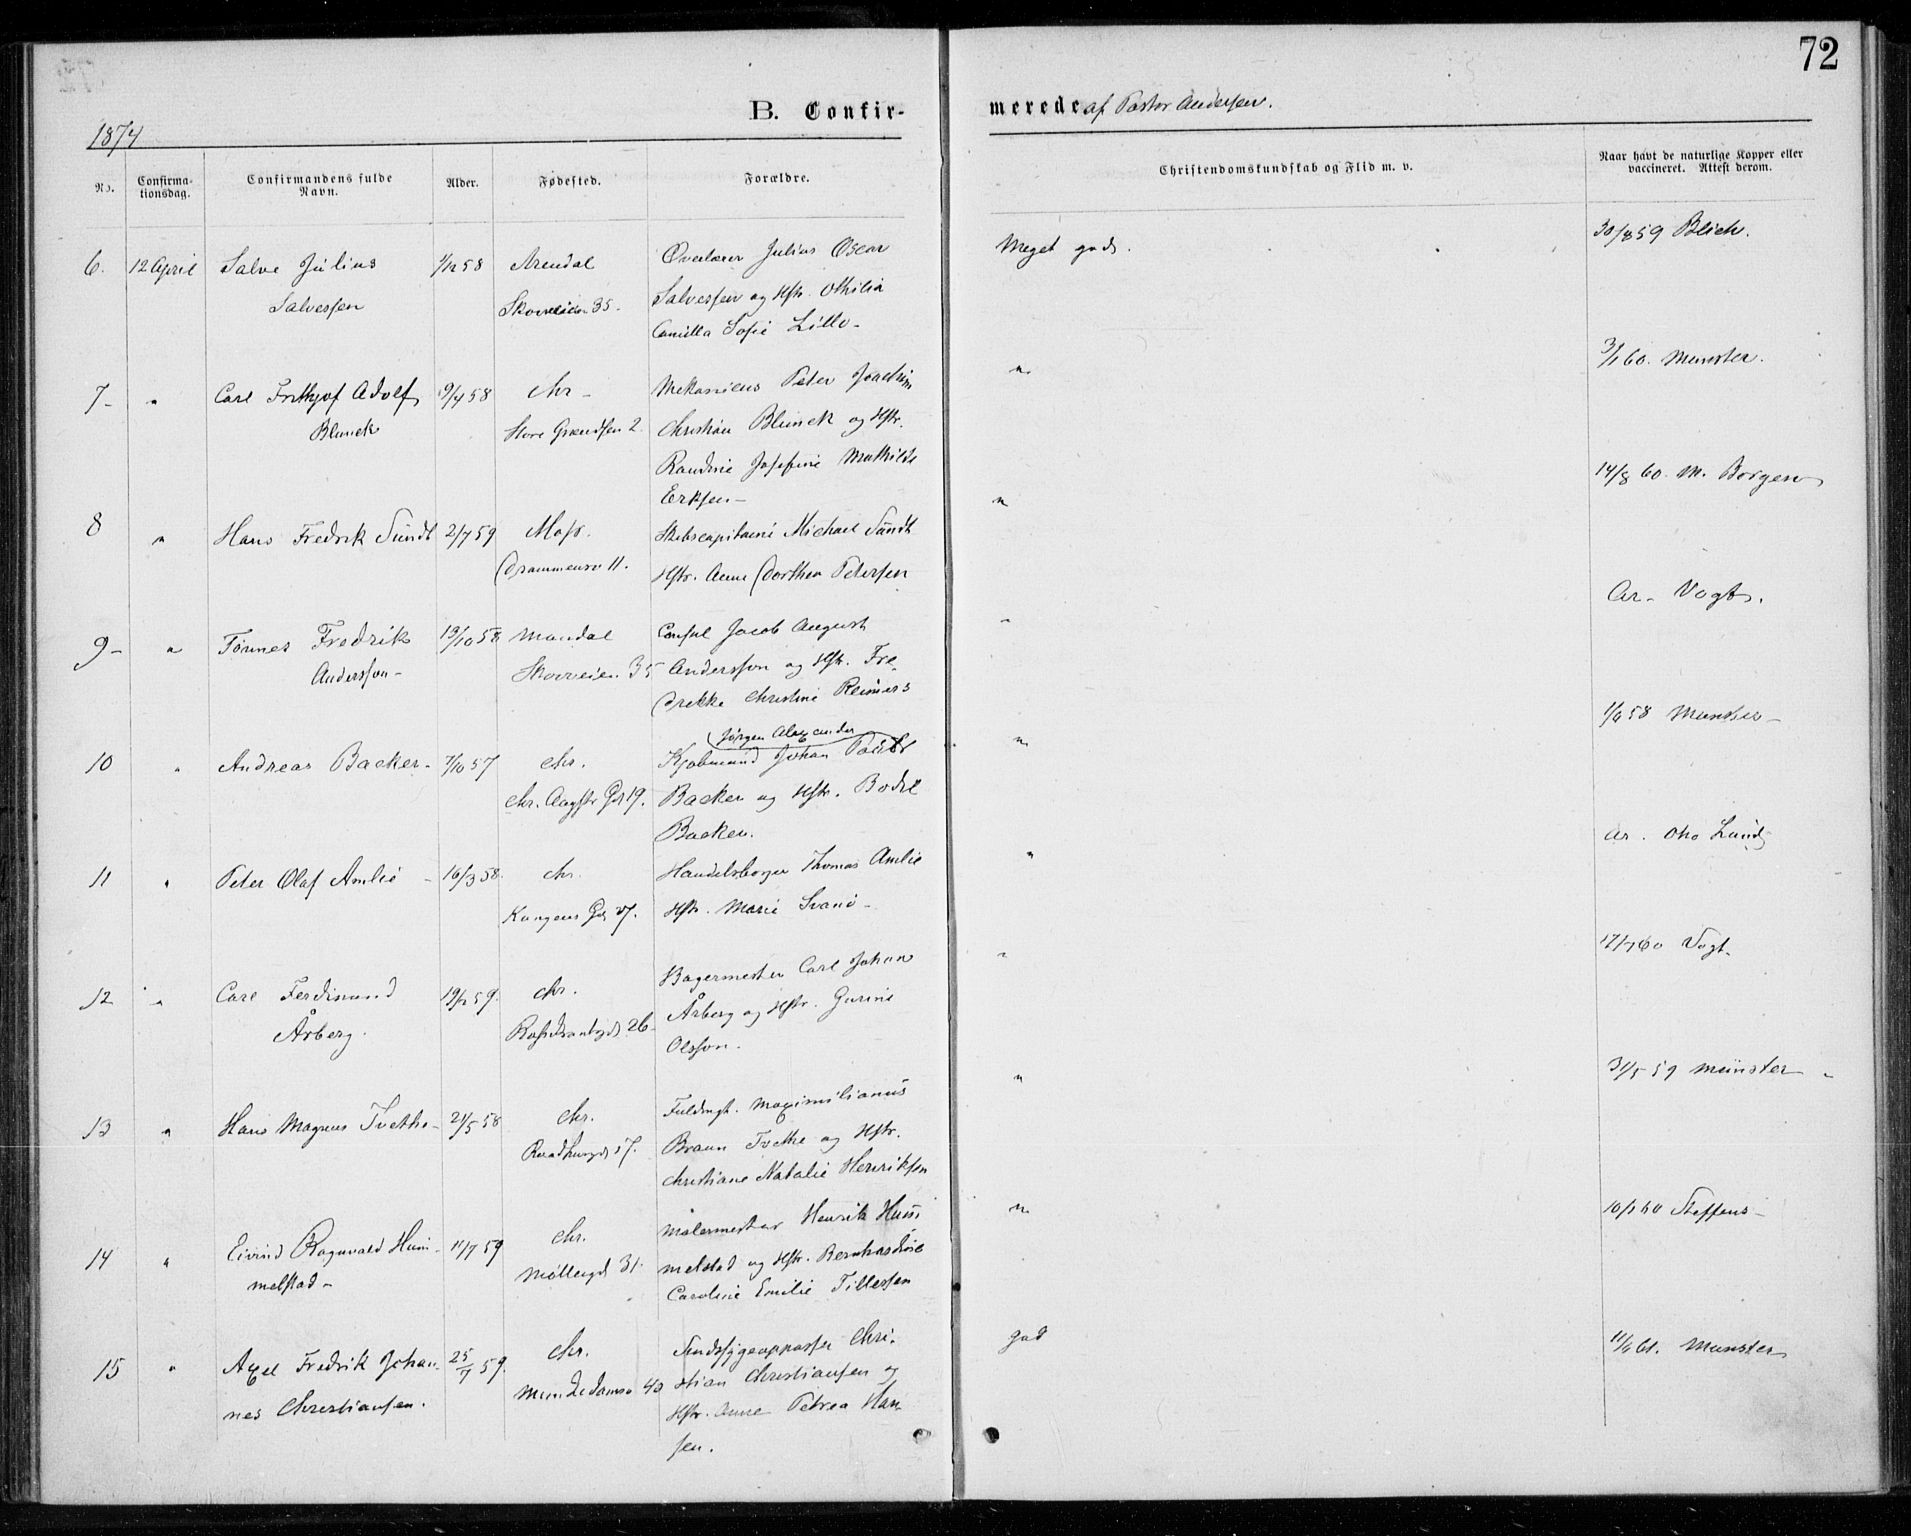 72
B. Confir-
merede af Pastor Andersen.
1874
No.
Confirma-
tionsdag.
Confirmandens fulde
Navn.
Alder.
Fødested.
Forældre.
Christendomskundskab og Flid m. v.
Naar havt de naturlige Kopper eller
vaccineret. Attest derom.
6. 12 April Salve Julius 1/12 58 Arendal Overlærer Julius Oscar Meget god. 30/8 59 Blich.
Salvessen 35. Salvessen og Hstr. Othilia
Camilla Sofie Lille-
7- " Carl Frithjof Adolf 19/4 58 Chr- Mekanicus Peter Joachim " 3/1 60. Munster.
Blunck Store Grændsen 2. Christian Blunck og Hstr.
Randine Josefine Mathilde
Eriksen-
8 " Hans Fredrik Sundt 2/7 59 Moss. Skibscapitaine Michael Sundt " 14/8 60. M. Borgen
Drammensv 11. Hstr. Anne Dorthea Petersen
9- " Tønnes Fredrik 13/10 58 Mandal Consul Jacob August " Ar- Vogt.
Andersson- Skovveien 35 Andersson og Hstr. Fre-
drikke Christine Reimers
Jørgen Alexander
10 " Andreas Backer- 7/10 57 Chr. Kjøbmand Johan " 1/9 58 Munster-
Chr. Augstr Gd 19. Backer og Hstr. Bodil
Backer.
11 " Peter Olaf Amlie- 16/3 58. Chr. Handelsborger Thomas Amlie " ar. Otto Lund
Kongens Gd 27. Hstr. Marie Svanø-
12 " Carl Ferdinand 19/2 59. Chr. Bagermester Carl Johan " 17/7 60 Vogt.
Årberg. 26- Årberg og Hstr. Gurine
Olsson.
13 " Hans Magnus Tvethe- 21/5 58 Chr. Fuldmgt. Maximilianus " 31/5 59 Münster-
Raadhusgd 17. Braun Tvethe og Hstr.
Christiane Natalie Henriksen
14 " Eivind Ragnvald Hum- 11/7 59 Chr. Malermester Henrik Hum " 10/1 60 Steffens-
melstad- Møllergd 31. melstad og Hstr. Bernhardine
Caroline Emilie Tillessen
15 " Axel Fredrik Johan- 25/7 59. Chr. Sindssygeopasser Chri- god 11/9 61. Munster
nes Christiansen. Munkedamsv 40 stian Christiansen og
Hstr. Anne Petrea Han-
sen.